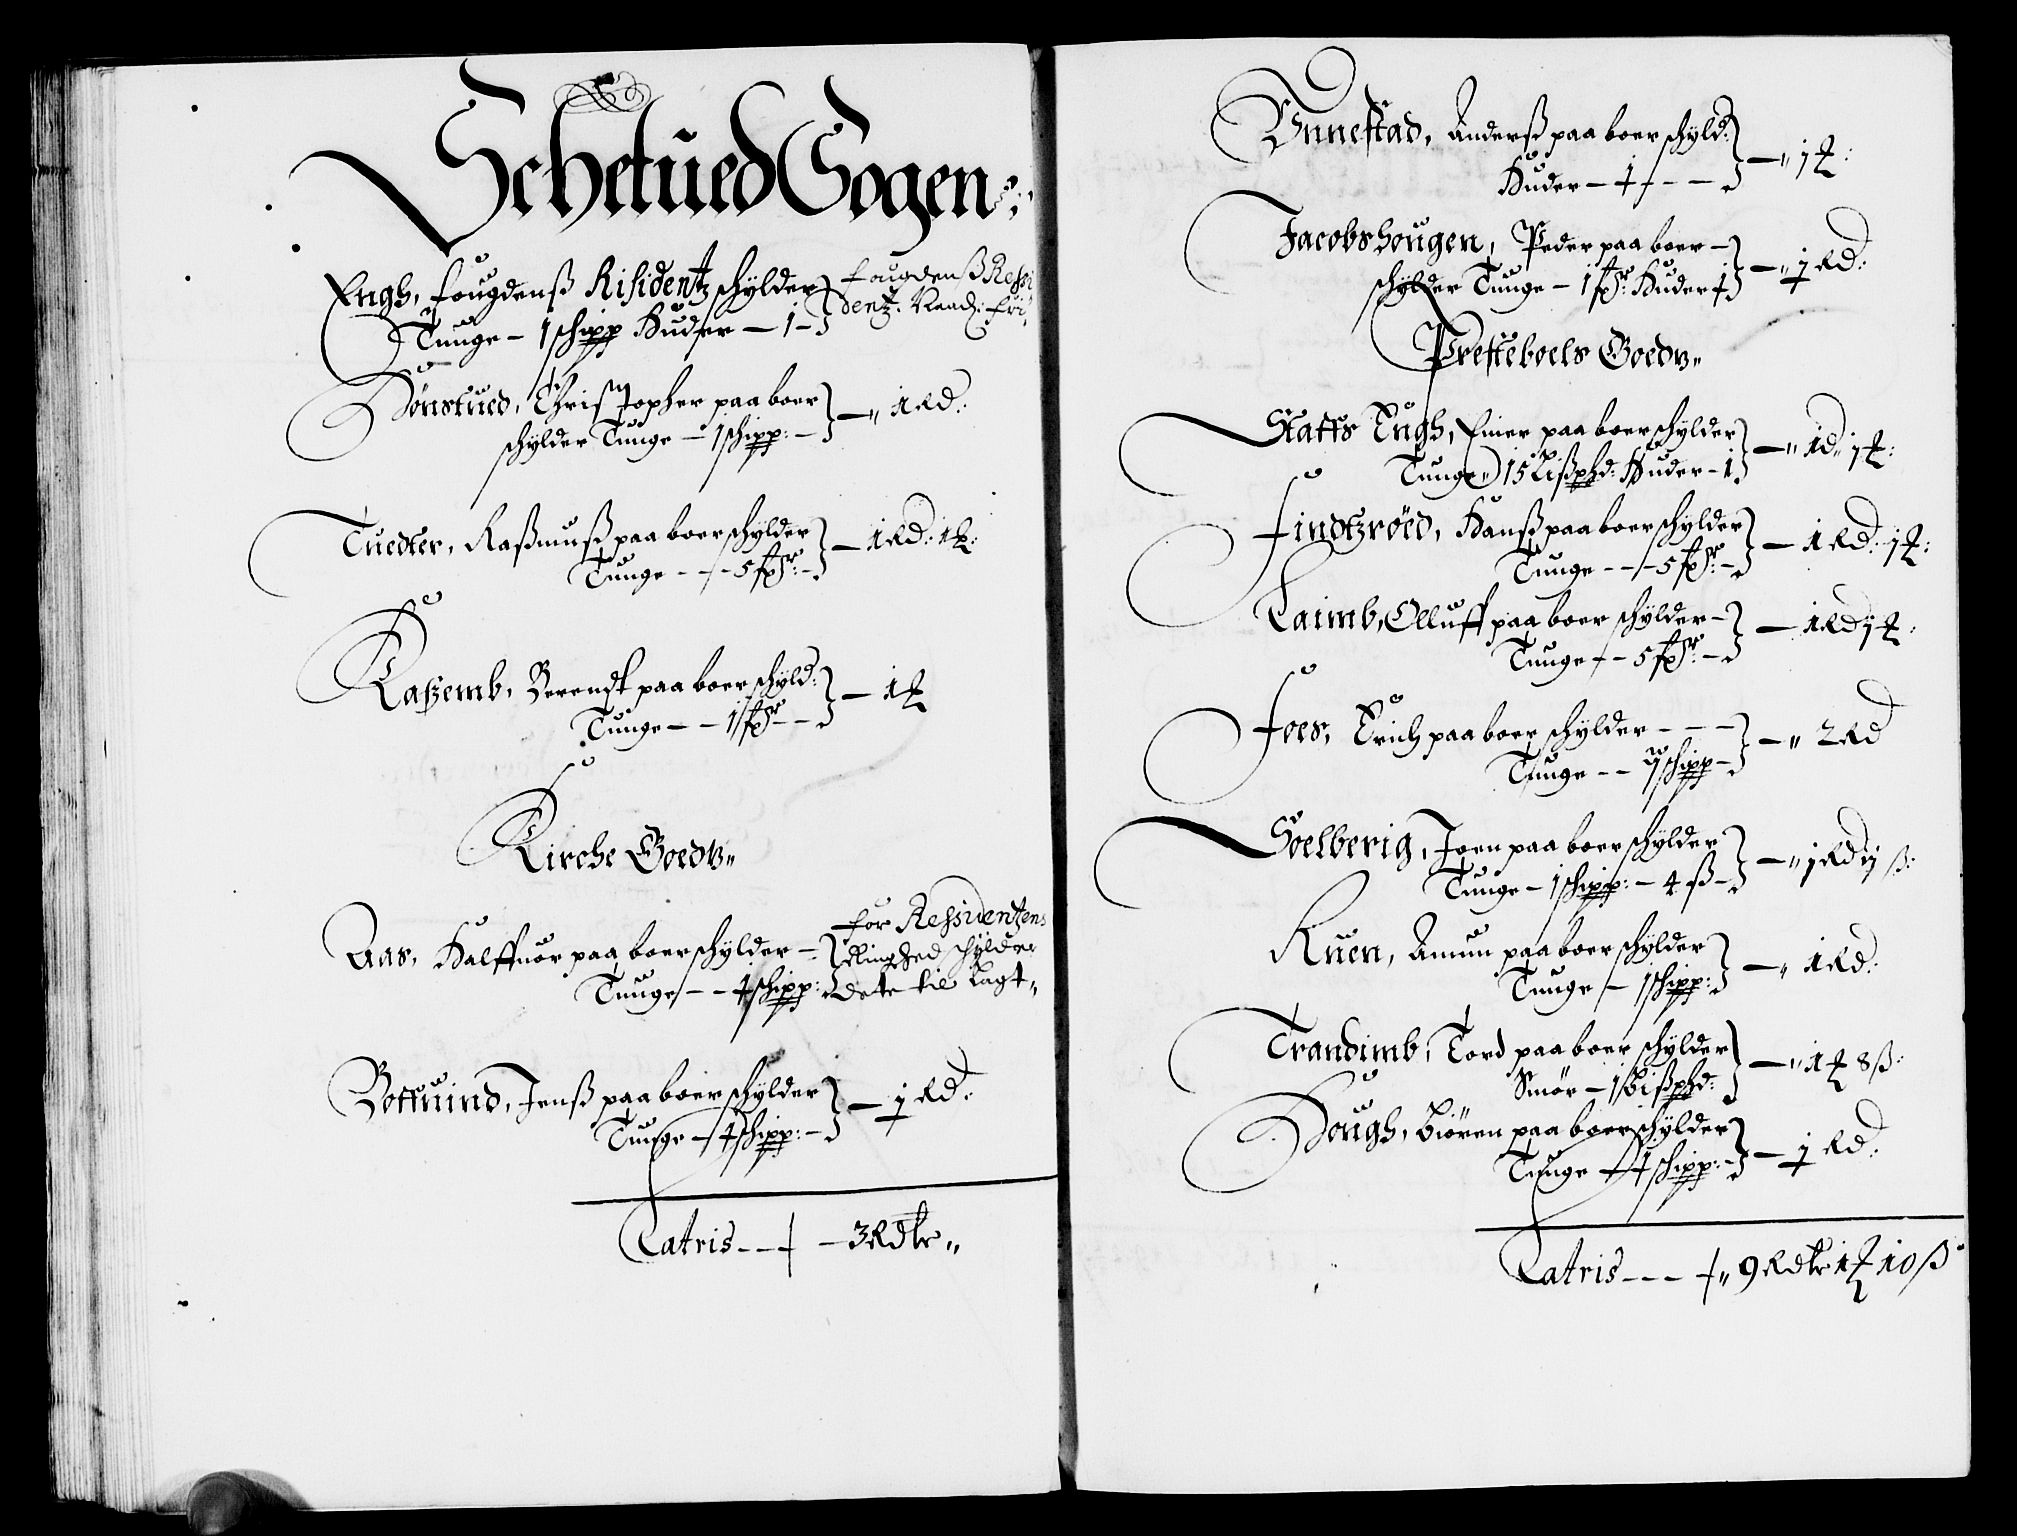 Schetued Sogen:
Engh, fougdenß Risidentz schylder
Tunge – 1 schipp Huder – 1 –
fougdenß Ressi
dentz. Naad: fri
Dønstued, Christopher paa boer
schylder Tunge – 1 schipp: – – „ 1 Rd:
Tuedter, Raßmuß paa boer schylder
Tunge - - - 5 fr: – – 1 Rd: 1 ƶ:
Kaßemb, Berendt paa boer schyld:
Tunge – – 1 fr - - – 1 ƶ
Kirche Goedtz„
Aas, Halffuor paa boer schylder –
Tunge – – ½ schipp:
for Ressidentzens
schylder
dete til Lagt„
Bottuind, Jenß paa boer schylder
Tunge – ½ schipp: – – ½ Rd:
Latris - - - – 3 Rdlr„
Unnestad, Anderß paa boer schyld:
Huder – ½ - - – – „ 1 ƶ:
Jacobshougen, Peder paa boer –
schylder Tunge – 1 fr: Huder ½ – „ ½ Rd:
Presteboels Goedtz„
Statts Engh, Einer paa boer schylder
Tunge 15 Lißphd: Huder – 1 – „ 1 d„ 1 ƶ:
Findtzrøed, Hanß paa boer schylder
Tunge - - - 5 fr: – – 1 Rd: 1 ƶ:
Laimb, Olluff paa boer schylder –
Tunge - - 5 fr: – – 1 Rd 1 ƶ:
Foes, Erich paa boer schylder - - -
Tunge - - schipp – – „ 2 Rd
Soelberig, Joen paa boer schylder
Tunge – 1 schipp: – 4 ß – – „ 1 Rd ij ß:
Ruen, Amun paa boer schylder
Tunge – 1 schipp: – „ 1 Rd:
Trandimb, Tord paa boer schylder
Smør – 1 Bißphd: – „ 1 ƶ 8 ß:
Hough, Biøren paa boer schylder
Tunge – ½ schipp: – – ½ Rd:
Latris - - - „ 9 Rdlr 1 ƶ 10 ß